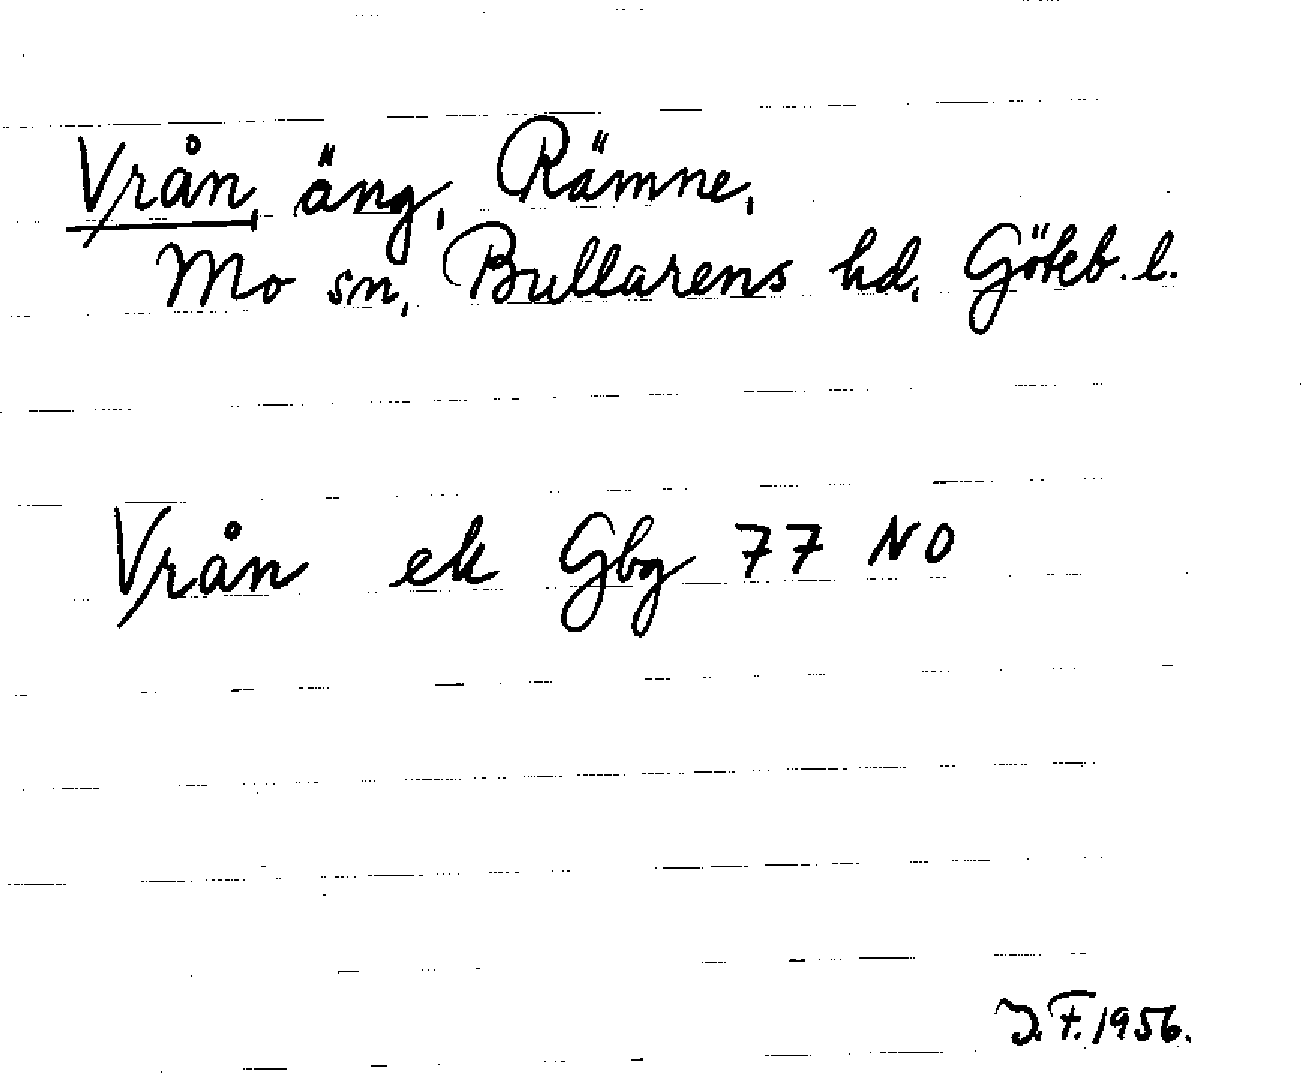 Vrån, äng, Rämne,
Mo sn, Bullarens hd, Göteb. l.
Vrån ek Gbg 77 NO
J.F. 1956.